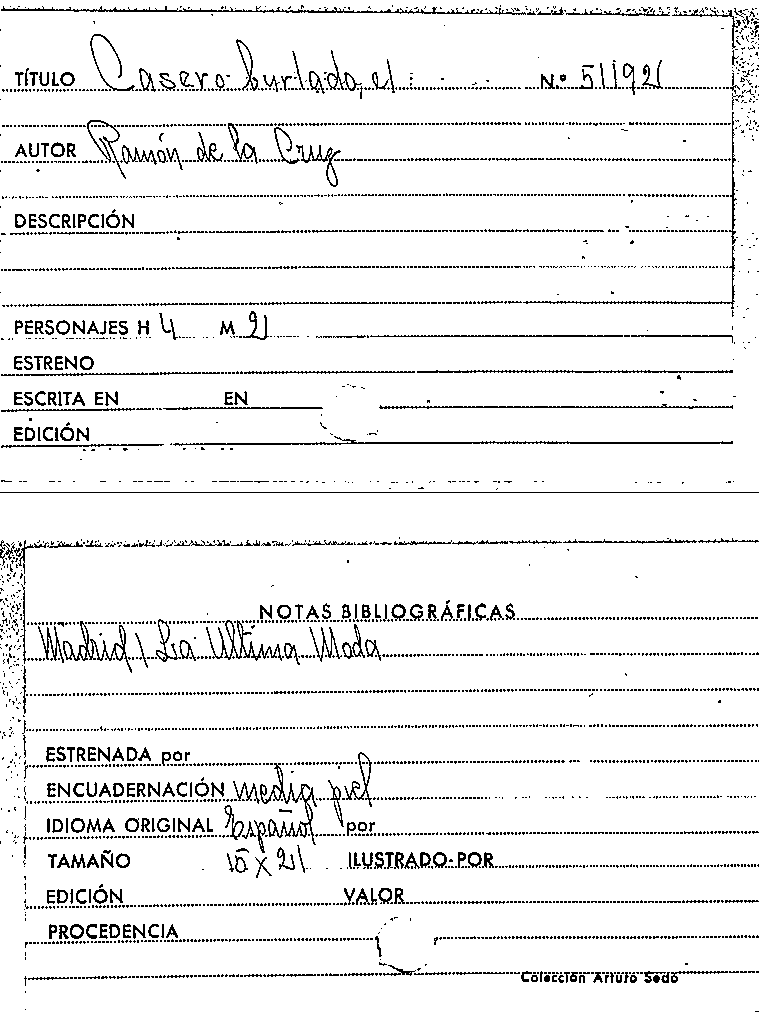 TÍTULO Casero burlado, el Nº 51192
AUTOR Ramón de la Cruz
DESCRIPCIÓN
PERSONAJES H 4 M 2
ESTRENO
ESCRITA EN EN
EDICIÓN
NOTAS BIBLIOGRÁFICAS
Madrid / La Ultima Moda
ESTRENADA por
ENCUADERNACIÓN media piel
IDIOMA ORIGINAL Español por
TAMAÑO 15 x 21 ILUSTRADO POR
EDICIÓN VALOR
PROCEDENCIA
Colección Arturo Sedó